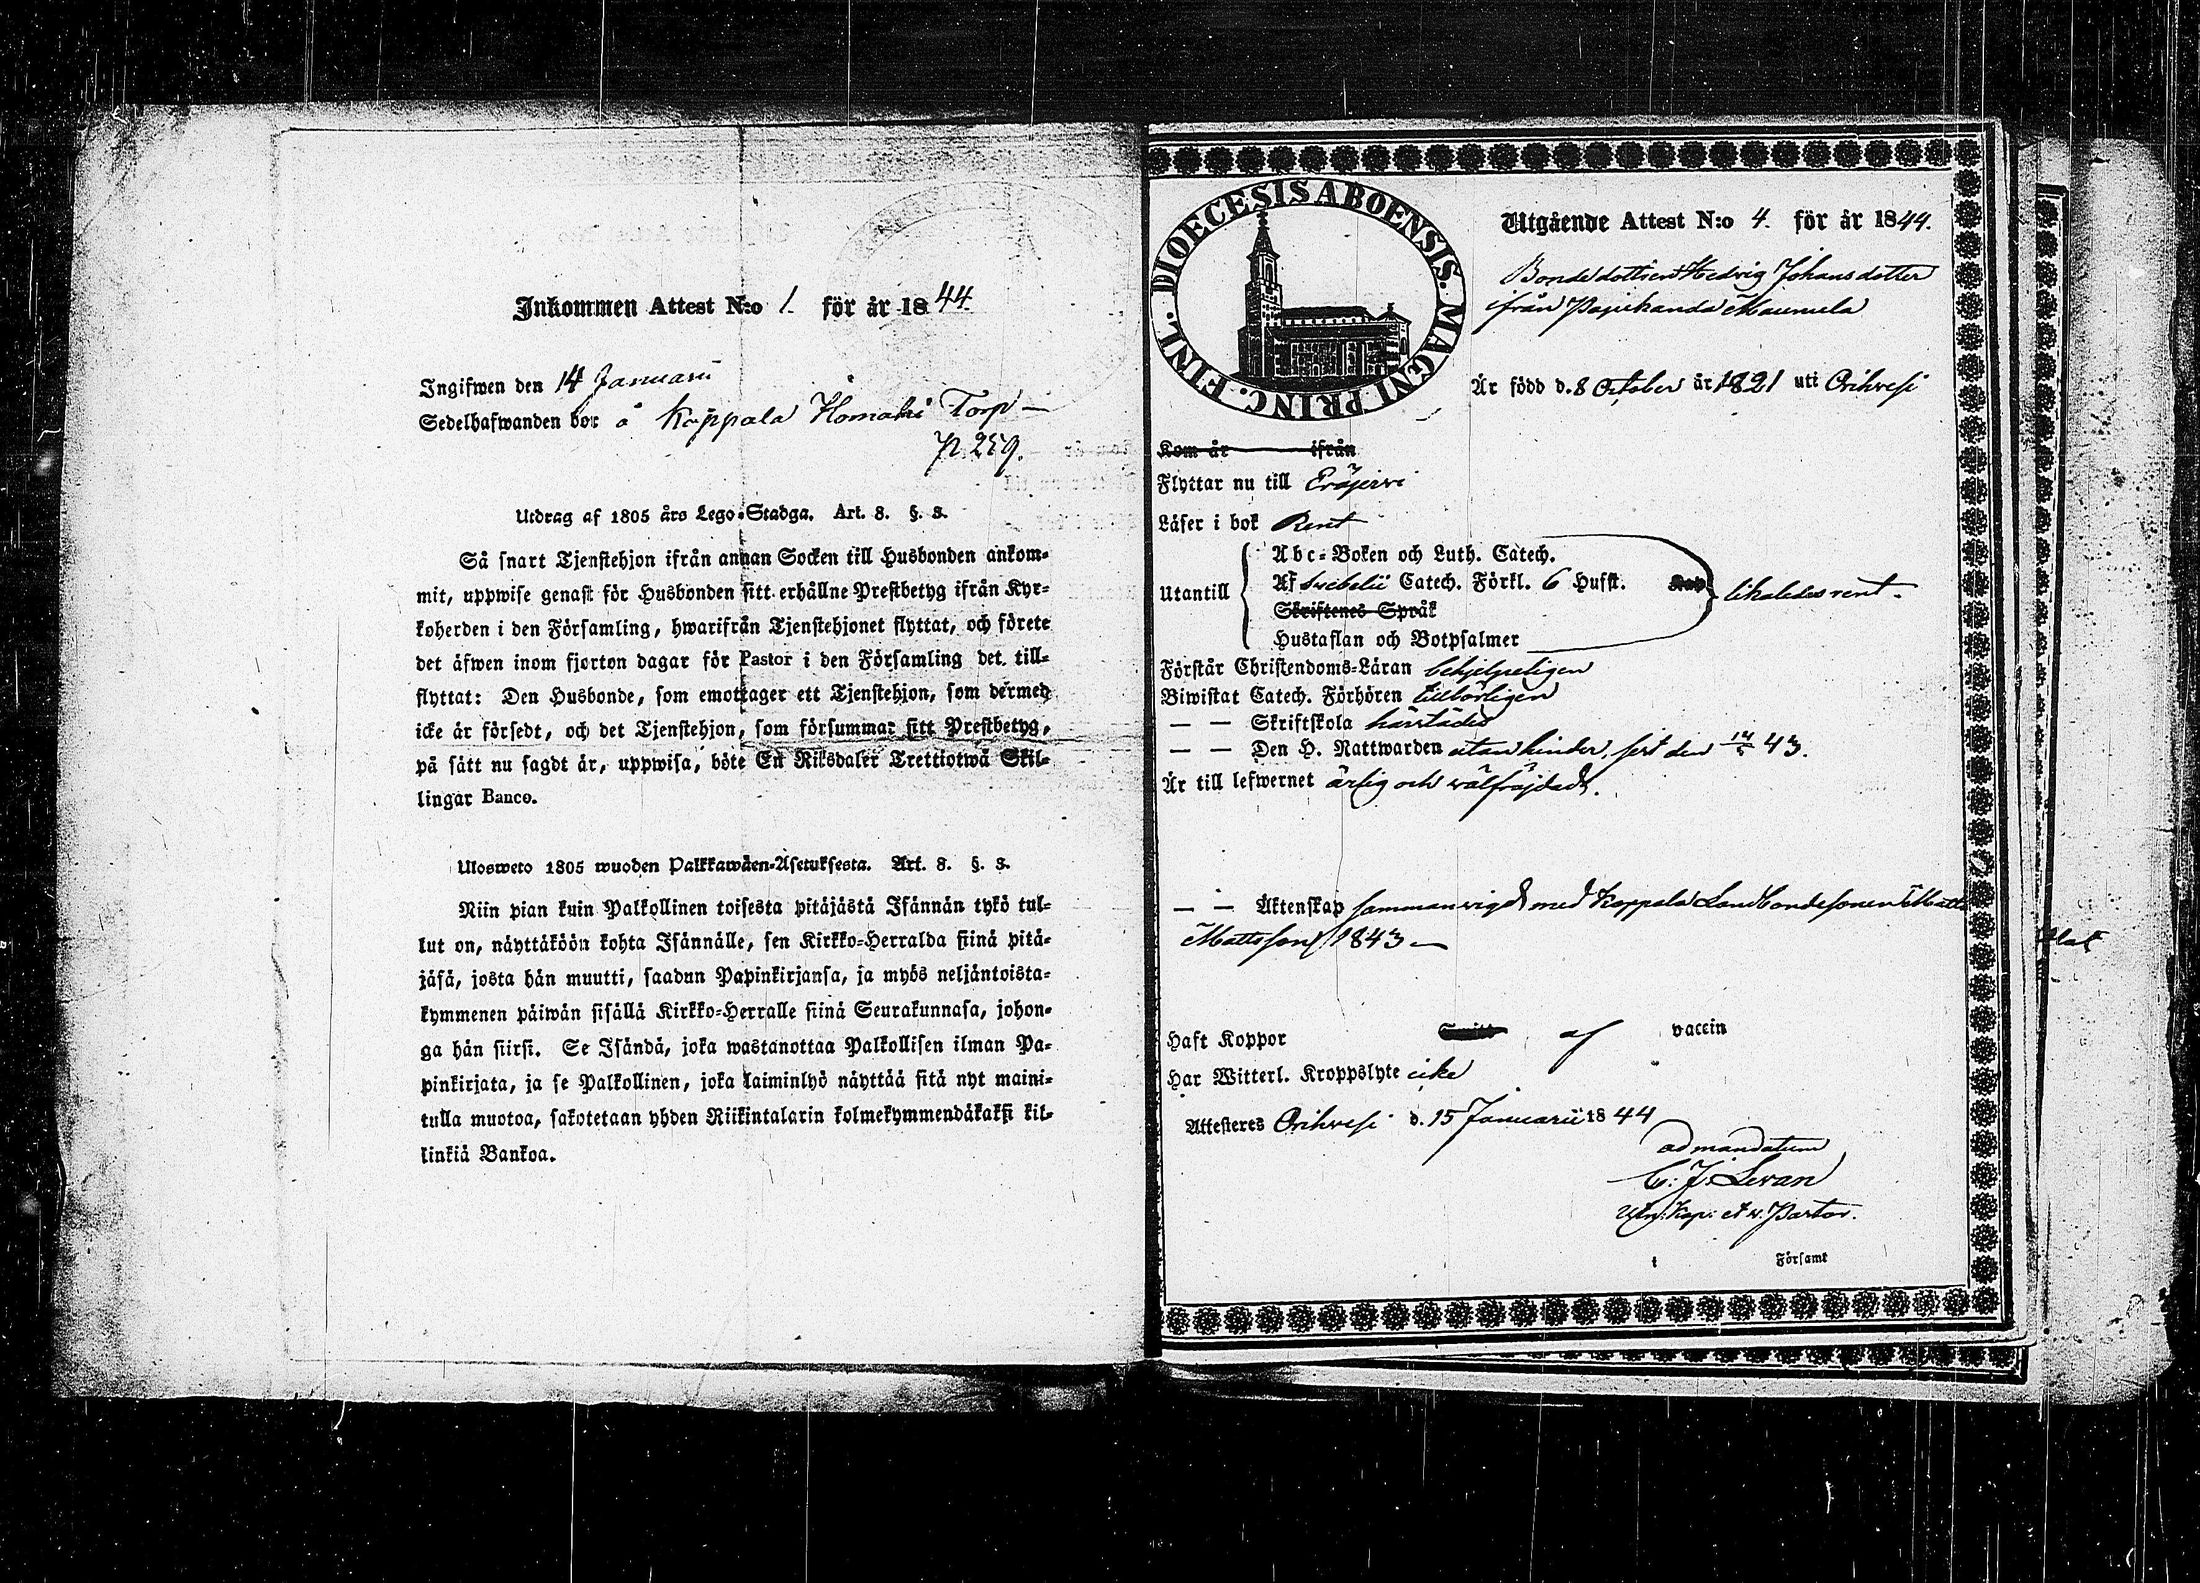 Inkommen Attest N:o 1. för år 1844.
Ingifwen den 14 Januarii
Sedelhafwanden bor å Koppala Homahi Torp —
p. 259.
Utdrag af 1805 års Lego-Stadga. Art. 8. §. 3.
Så snart Tjenstehjon ifrån annan Socken till Husbonden ankom-
mit, uppwise genast för Husbonden sitt erhållne Prestbetyg ifrån Kyr-
koherden i den Församling, hwarifrån Tjenstehjonet flyttat, och förete
det äfwen inom fjorton dagar för Pastor i den Församling det till-
flyttat: Den Husbonde, som emottager ett Tjenstehjon, som dermed
icke är försedt, och det Tjenstehjon, som försummar sitt Prestbetyg,
på sätt nu sagdt är, uppwisa, böte En Riksdaler Trettiotwå Skil-
lingar Banco.
Ulosweto 1805 wuoden Palkkawäen-Asetuksesta. Art. 8. §. 3.
Niin pian kuin Palkollinen toisesta pitäjästä Isännän tykö tul-
lut on, näyttäköön kohta Isännälle, sen Kirkko-Herralda siinä pitä-
jäsä, josta hän muutti, saadun Papinkirjansa, ja myös neljäntoista-
kymmenen päiwän sisällä Kirkko-Herralle siinä Seurakunnasa, johon-
ga hän siirsi. Se Isändä, joka wastanottaa Palkollisen ilman Pa-
pinkirjata, ja se Palkollinen, joka laiminlyö näyttää sitä nyt maini-
tulla muotoa, sakotetaan yhden Riikintalarin kolmekymmendäkaksi kil-
linkiä Bankoa.
DIOECESIS ABOENSIS. MAGNI PRINC. FINL.
Utgående Attest N:o 4. för år 1844.
Bondedottren Hedvig Johansdotter
från Maunula
Är född d. 8 October år 1821 uti Orihvesi
Kom år ifrån
Flyttar nu till Eräjervi
Läser i bok Rent
Utantill
Abc-Boken och Luth. Catech.
Af Svebelii Catech. Förkl. 6 Hufst.
Skriftenes Språk
Hustaflan och Botpsalmer
likaledes rent.
Förstår Christendoms-Läran behjelpeligen
Biwistat Catech. Förhören tillbörligen
— — Skriftskola härstädes
— — Den H. Nattwarden utan hinder, sist den 43.
Är till lefwernet ärlig och välfräjdad.
— — Äktenskap sammanvigd med Koppala Landbondesonen Matts
Mattsson 1843 —
Haft Koppor af vaccin
Har Witterl. Kroppslyte icke
Attesteres Orihvesi d. 15 Januarii 1844
ad mandatum
C. J. Levan
Kap: et v. Pastor.
Församl